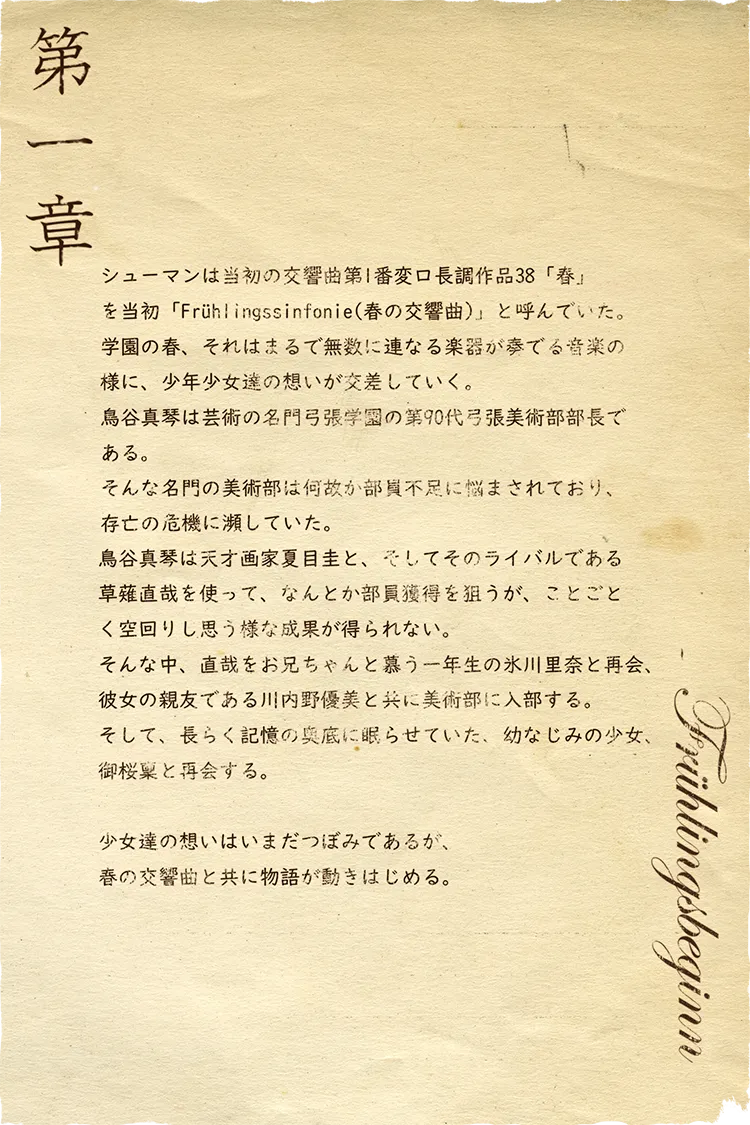 第一章
シューマンは当初の交響曲第1番変ロ長調作品38「春」
を当初「Frühlingssinfonie(春の交響曲)」と呼んでいた。
学園の春、それはまるで無数に連なる楽器が奏でる音楽の
様に、少年少女達の想いが交差していく。
鳥谷真琴は芸術の名門弓張学園の第90代弓張美術部部長で
ある。
そんな名門の美術部は何故か部員不足に悩まされており、
存亡の危機に瀕していた。
鳥谷真琴は天才画家夏目圭と、そしてそのライバルである
草薙直哉を使って、なんとか部員獲得を狙うが、ことごと
く空回りし思う様な成果が得られない。
そんな中、直哉をお兄ちゃんと慕う一年生の氷川里奈と再会、
彼女の親友である川内野優美と共に美術部に入部する。
そして、長らく記憶の奥底に眠らせていた、幼なじみの少女、
御桜稟と再会する。
少女達の想いはいまだつぼみであるが、
春の交響曲と共に物語が動きはじめる。
Frühlingsbeginn